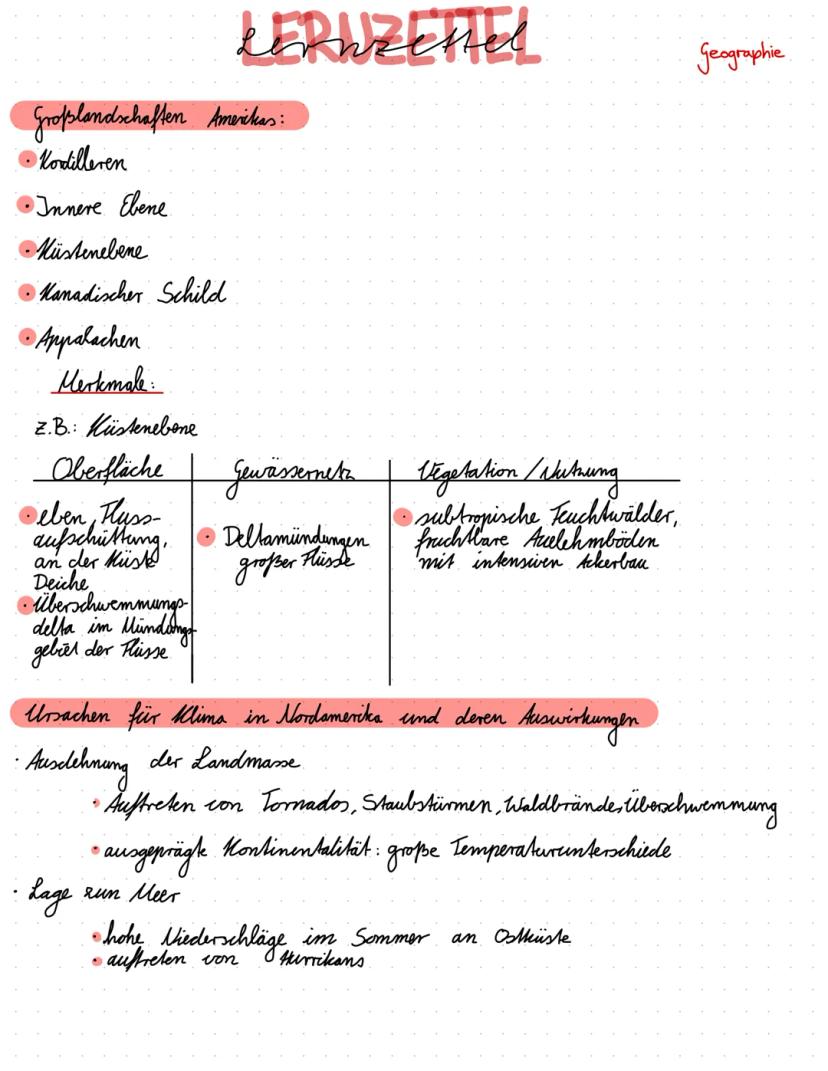 LERNZETTEL
Lernzettel
Geographie
Großlandschaften Amerikas:
• Kordilleren
• Innere Ebene
• Küstenebene
• Kanadischer Schild
• Appalachen
Merkmale:
z.B.: Küstenebene
Oberfläche
Gewässernetz
Vegetation / Nutzung
• eben, Fluss-
aufschüttung,
an der Küste
Deiche
• Überschwemmungs-
delta im Mündungs-
gebiet der Flüsse
• Deltamündungen
großer Flüsse
• subtropische Feuchtwälder,
fruchtbare Auelehmböden
mit intensiven Ackerbau
Ursachen für Klima in Nordamerika und deren Auswirkungen
· Ausdehnung der Landmasse
• Auftreten von Tornados, Staubstürmen, Waldbrände, Überschwemmung
• ausgeprägte Kontinentalität: große Temperaturunterschiede
· Lage zum Meer
• hohe Niederschläge im Sommer an Ostküste
• auftreten von Hurrikans